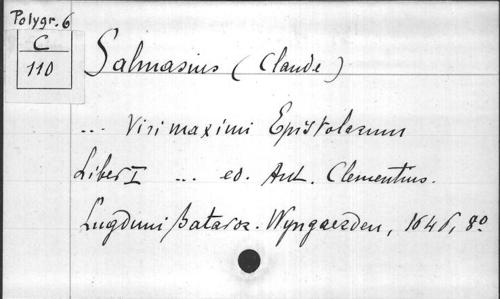 Polygr. 6
C
110
Salmasius (Claude)
... Viri maximi Epistolarum
Liber I ... ed. Ant. Clementius.
Lugduni Batavor. Wyngaerden, 1646, 8º